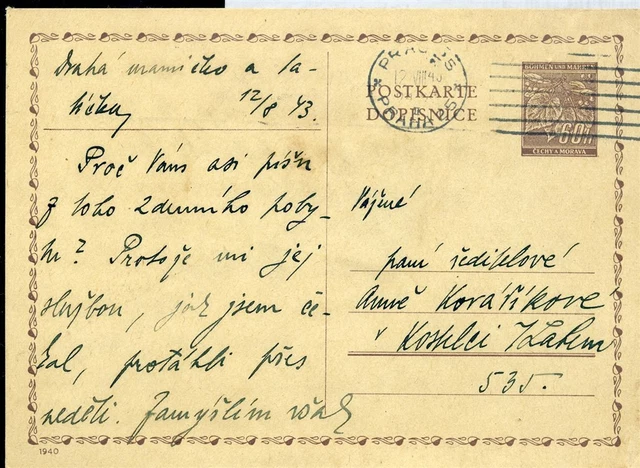 Drahá maminko a ta-
tíčku, 12/8 43.
Proč Vám asi píšu
z toho 2denního poby-
tu? Protože mi její
službou, jak jsem če-
kal, protáhli přes
neděli. Zamýšlím však
PRAHA
POSTKARTE
DOPISNICE
BÖHMEN UND MÄHREN
60h
ČECHY A MORAVA
Vážená
paní ředitelové
Anně Kovaříkové
v Kostelci /Labem
535.
1940